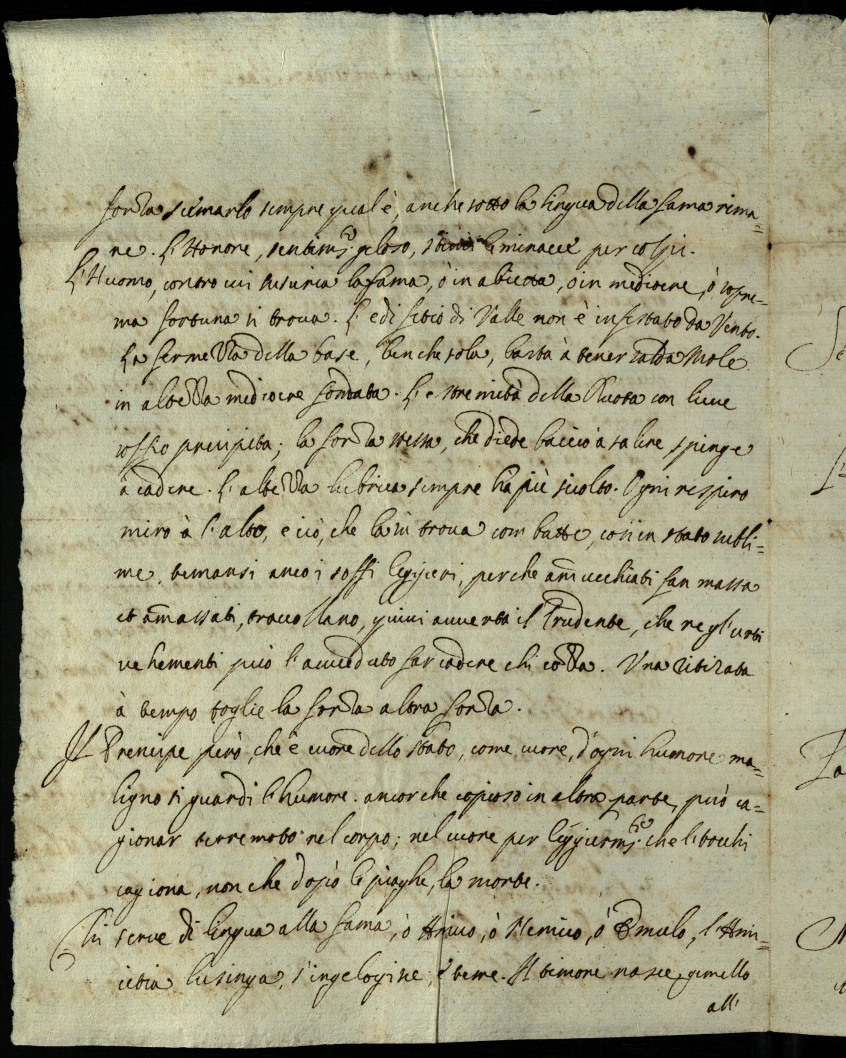 forza stimarlo sempre qual è, anche sotto la lingua della fama rima=
ne. L'Honore, sentim.to geloso, le minacce per colpi.
L'Huomo, contro cui susurra la fama, ò in abietta, ò in mediocre, ò supre=
ma fortuna si trova. L' edifitio di Valle non è infestato da Vento.
La fermezza della base, benche sola, basta à tener salda Mole
in altezza mediocre fondata. L'estremità della Ruota con lieve
soffio precipita; la forza stessa, che diede braccio à salire, spinge
à cadere. L'altezza lubrica sempre hà più scolto. Ogni respiro
miro à l'alto, e ciò, che la in trova combatte, così in stato subli=
me, temansi anco i soffi leggieri, perche amucchiati fan massa
et amassati, traccollano, quivi avverta il Prudente, che ne gl'urti
vehementi può l'avveduto far cadere chi cozza. Una ritirata
à tempo toglie la forza altra forza.
Il Prencipe però, che è cuore dello stato, come cuore, d'ogni humore ma=
ligno si guardi l'humore. ancor che copioso in altra parte, può ca=
gionar terremoto nel corpo; nel cuore per leggierm.te che li tocchi
cagiona, non che dopò le piaghe, la morte.
Chi serve di lingua alla fama, ò Amico, ò Nemico, ò Emulo, l'Ami=
citia lusinga, s'ingelosisce, e teme. Il timore nasce gimello
all'